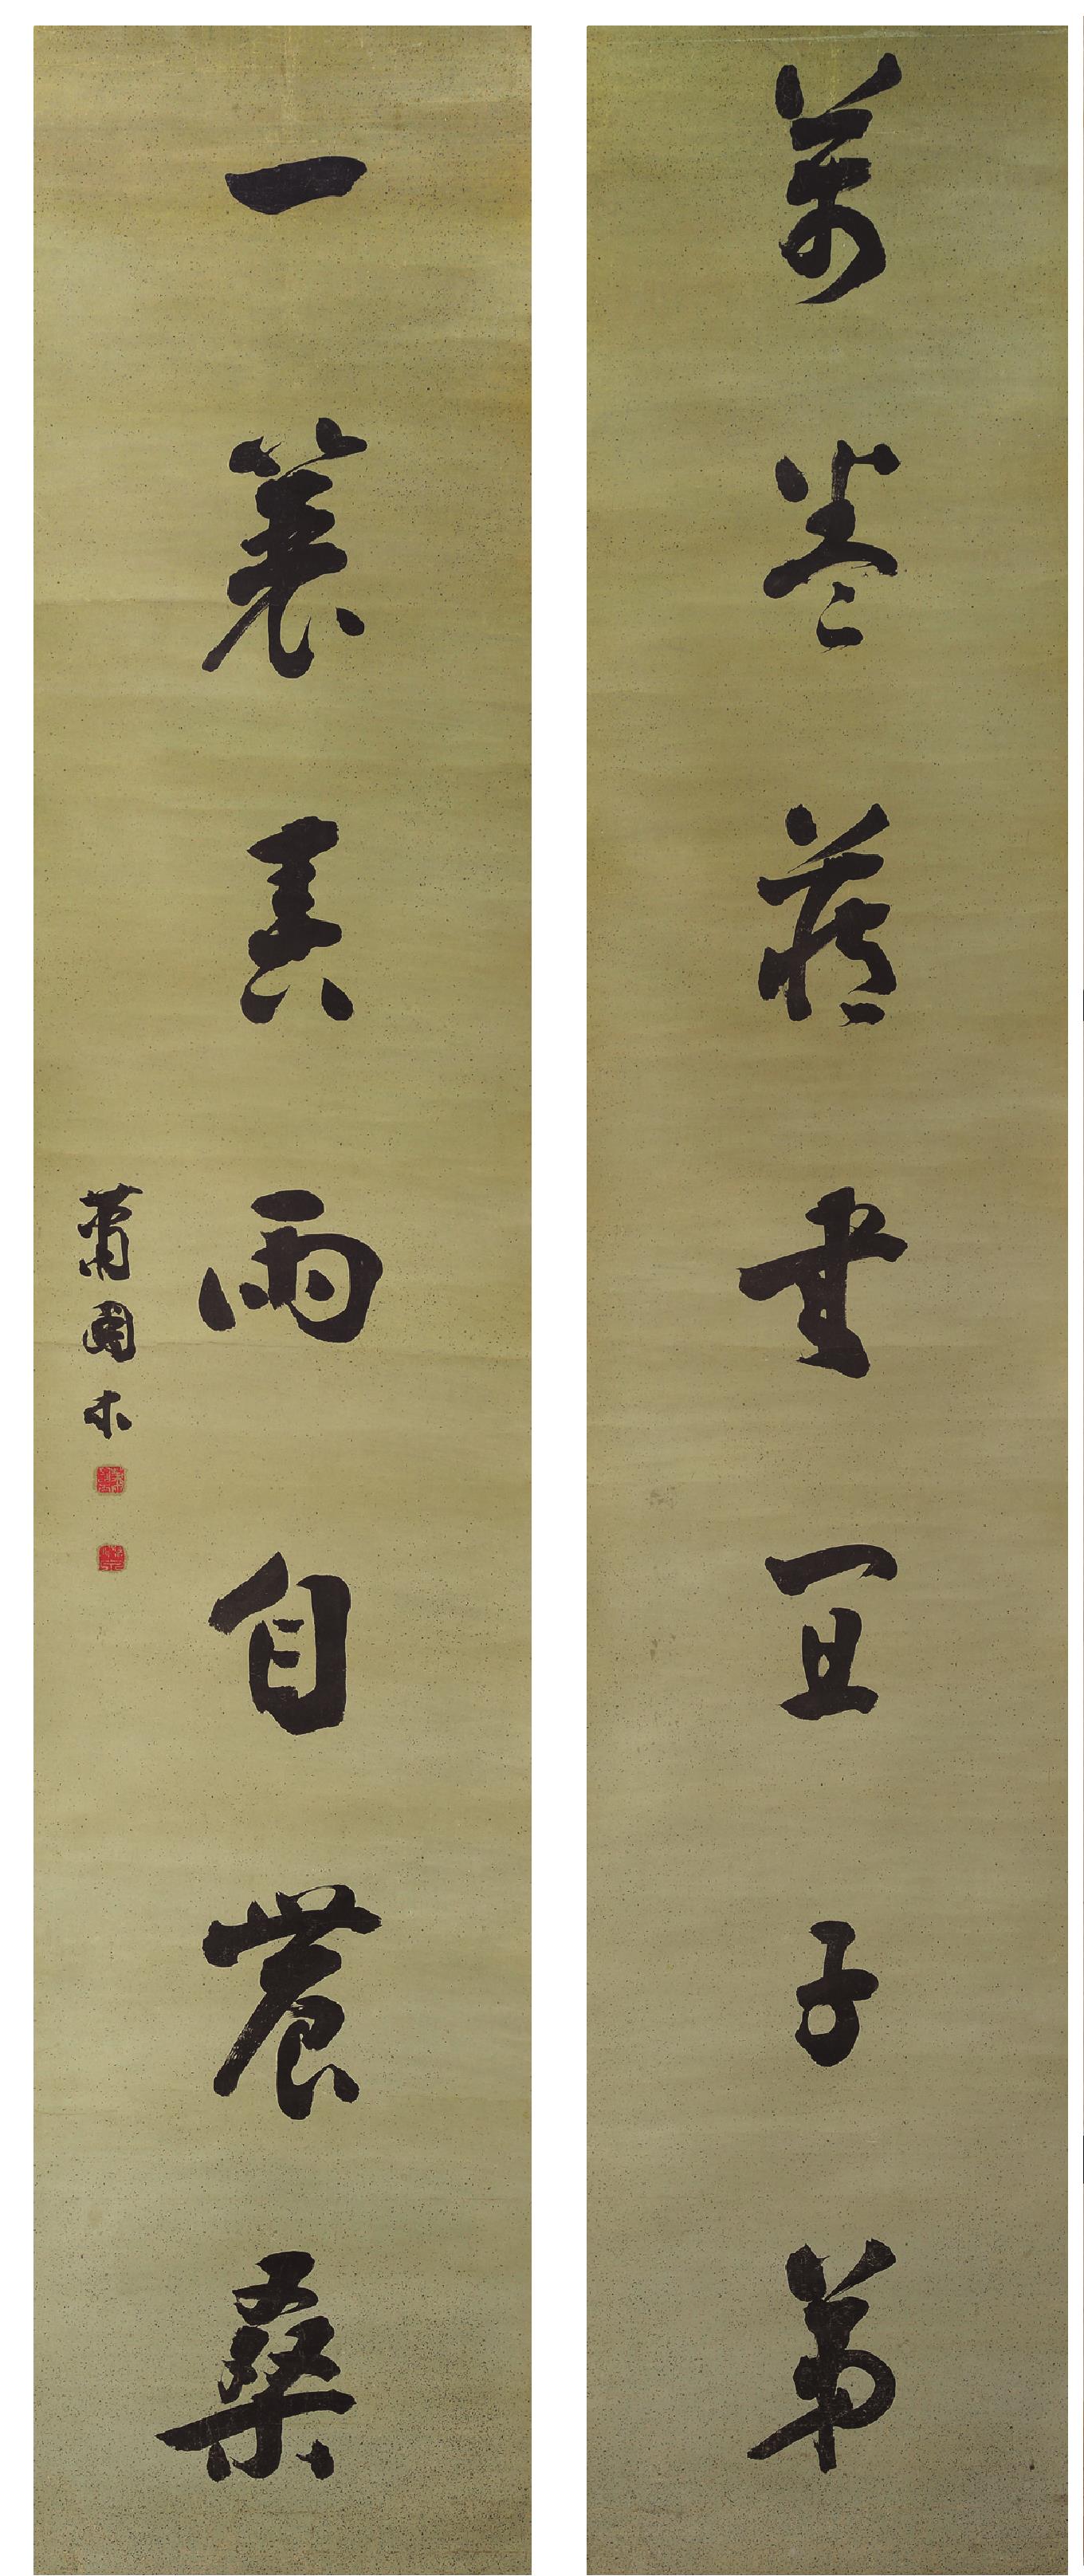 萬卷藏書宜子弟
一蓑春雨自農桑
蕭國本